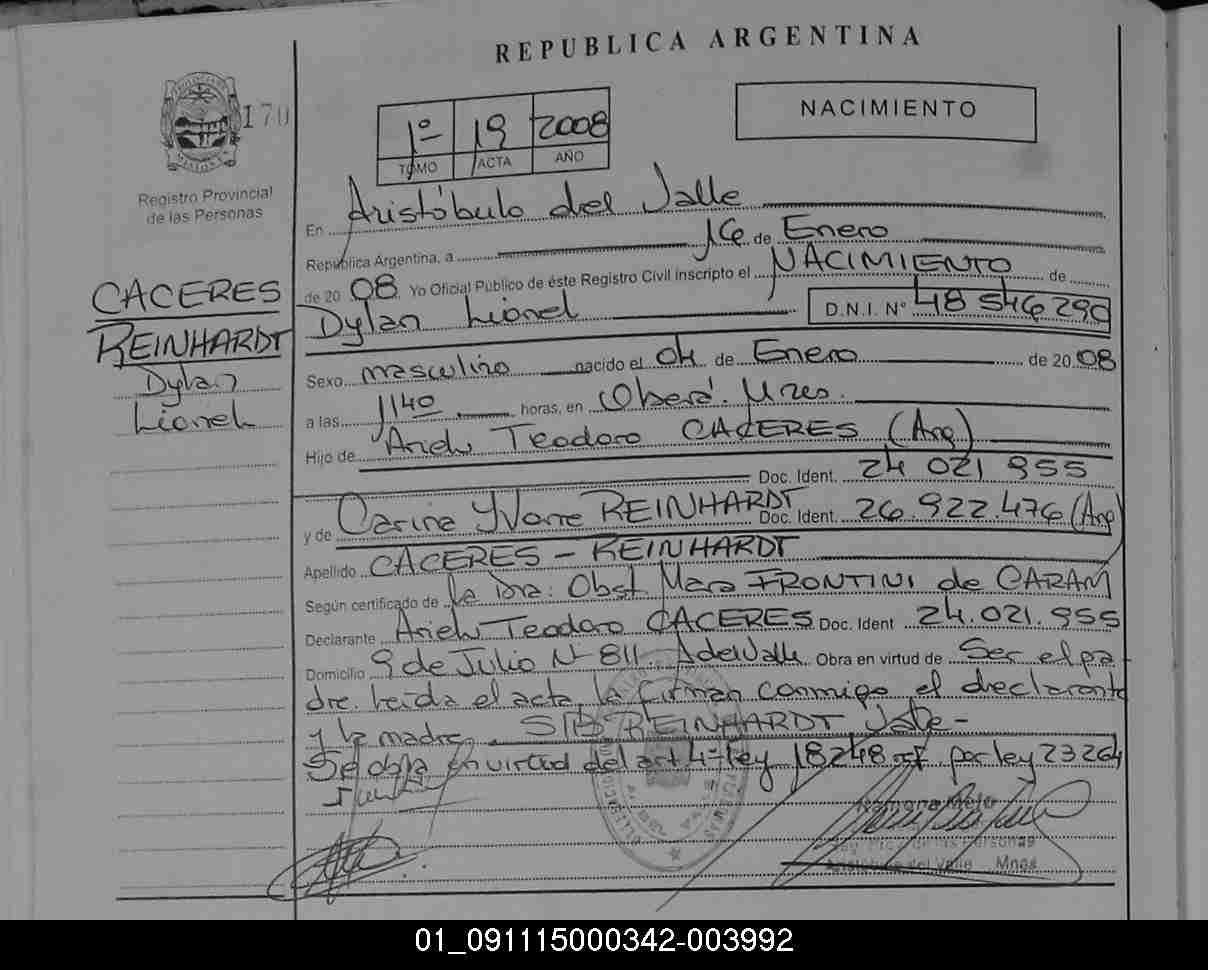 REPUBLICA ARGENTINA
170
1º 19 2008
TOMO ACTA AÑO
NACIMIENTO
Registro Provincial
de las Personas
En Aristóbulo del Valle
República Argentina, a 16 de Enero
de 2008 Yo Oficial Público de éste Registro Civil inscripto el NACIMIENTO de
Dylan Lionel D.N.I. Nº 48 546290
CACERES
REINHARDT
Dylan
Lionel
Sexo masculino nacido el 04 de Enero de 2008
a las 1140 horas, en Oberá. Mnes.
Hijo de Ariel Teodoro CACERES (Arg)
Doc. Ident. 24 021 955
y de Carina Yvonne REINHARDT Doc. Ident. 26.922.476 (Arg)
Apellido CACERES - REINHARDT
Según certificado de La Dra: Obst Mara FRONTINI de CARAM
Declarante Ariel Teodoro CACERES Doc. Ident 24.021.955
Domicilio 9 de Julio Nº 811. A del Valle Obra en virtud de Ser el pa-
dre. Leída el acta, la firman conmigo, el declarante
y la madre. S/B REINHARDT Vale-
Se obra en virtud del art 4º ley 18248 ref. por ley 23264
Ramona
Reg. Prov. de las Personas
Aristóbulo del Valle Mnes
01_091115000342-003992